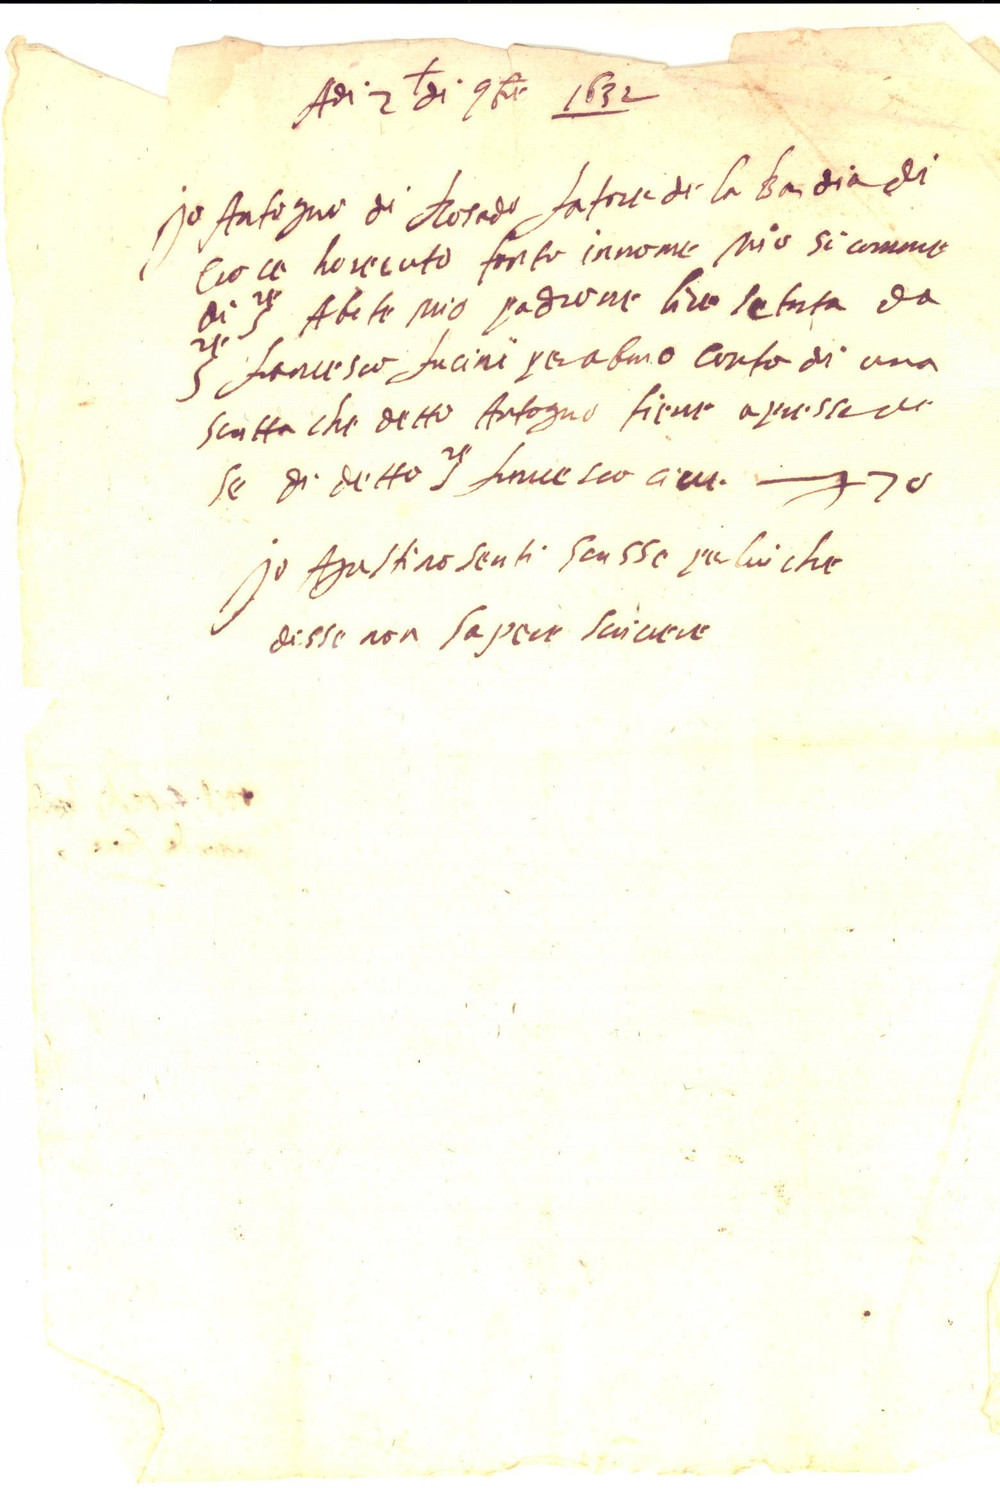 Adi 2 di 9bre 1632
Jo Antogno di Rosado fatore de la Badia di
Croce ho receuto tanto in nome mio si comme
di Sre Abate mio padrone lire setanta da
Sre francesco lucini per a buo conto di una
scritta che detto Antogno tiene apresso de
se di detto Sre francesco cioe 70
Jo Agustino senti scrisse per lui che
disse non sapere scrivere